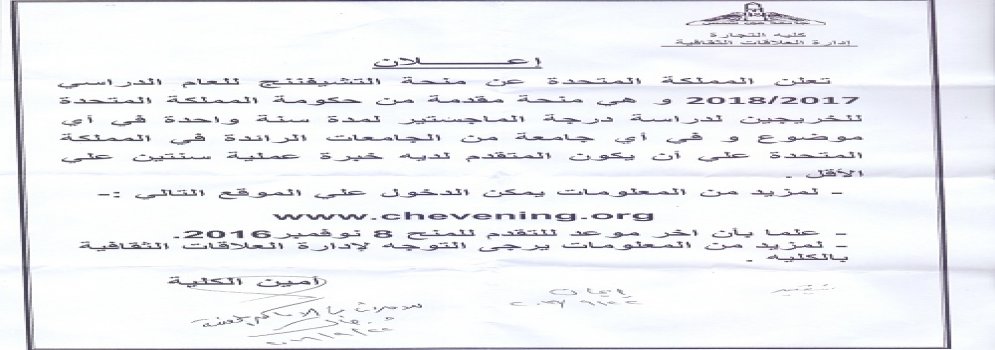 كلية التجارة
إدارة العلاقات الثقافية
إعـــــلان
تعلن المملكة المتحدة عن منحة التشيفننج للعام الدراسي
2018/2017 و هي منحة مقدمة من حكومة المملكة المتحدة
للخريجين لدراسة درجة الماجستير لمدة سنة واحدة في أي
موضوع و في أي جامعة من الجامعات الرائدة في المملكة
المتحدة علي أن يكون المتقدم لديه خبرة عملية سنتين علي
الأقل .
- لمزيد من المعلومات يمكن الدخول علي الموقع التالي :-
www.chevening.org
- علما بأن اخر موعد للتقدم للمنح 8 نوفمبر 2016.
- لمزيد من المعلومات يرجى التوجه لإدارة العلاقات الثقافية
بالكليه .
أمين الكلية
إيمان